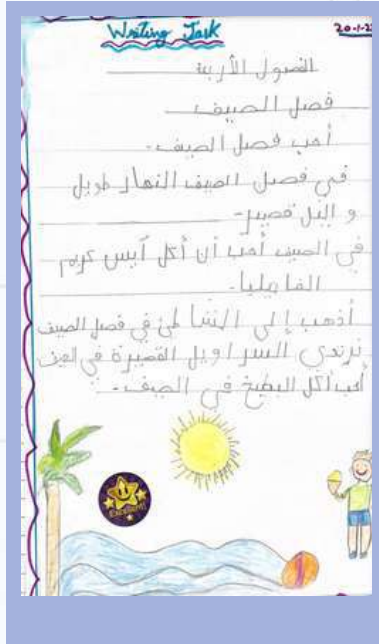 Writing Task
20-1-2
الفصول الأربعة
فصل الصيف
أحب فصل الصيف.
في فصل الصيف النهار طويل
و اليل قصير.
في الصيف أحب أن أكل آيس كريم
الفانيليا.
أذهب إلى الشاطئ في فصل الصيف
نرتدي السراويل القصيرة في الصيف
أحب أكل البطيخ في الصيف.
Excellent!